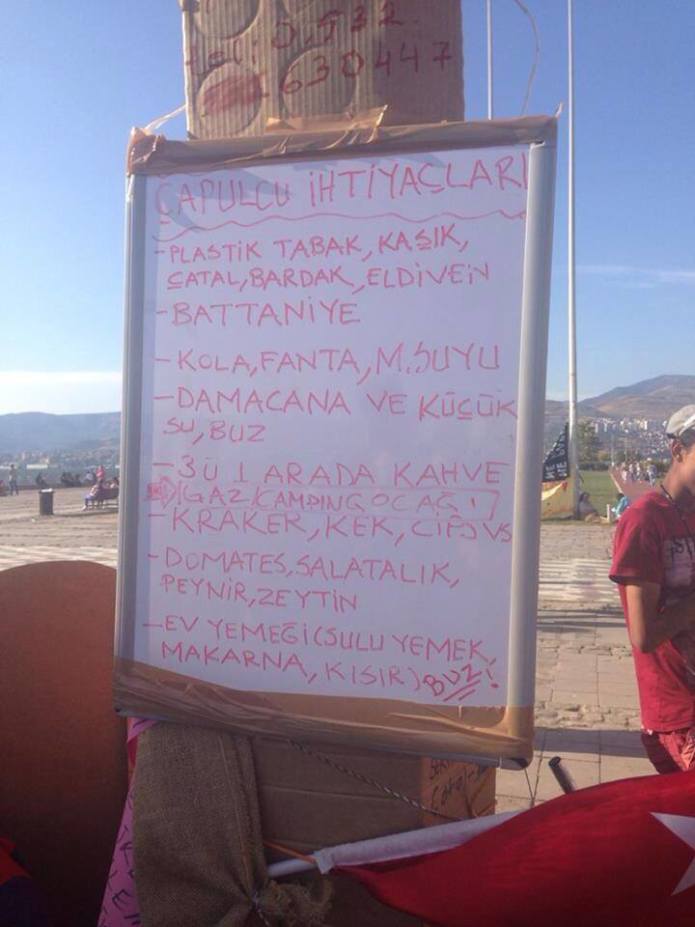 tel: 0.932
1630447
ÇAPULCU İHTİYAÇLARI
-PLASTİK TABAK, KAŞIK,
ÇATAL, BARDAK, ELDİVEİN
-BATTANİYE
- KOLA, FANTA, M. SUYU
- DAMACANA VE KÜÇÜK
SU, BUZ
- 3Ü 1 ARADA KAHVE
GAZ (CAMPING OCAĞI)
- KRAKER, KEK, CİPS VS
- DOMATES, SALATALIK,
PEYNİR, ZEYTİN
- EV YEMEĞİ (SULU YEMEK,
MAKARNA, KISIR) BUZ!